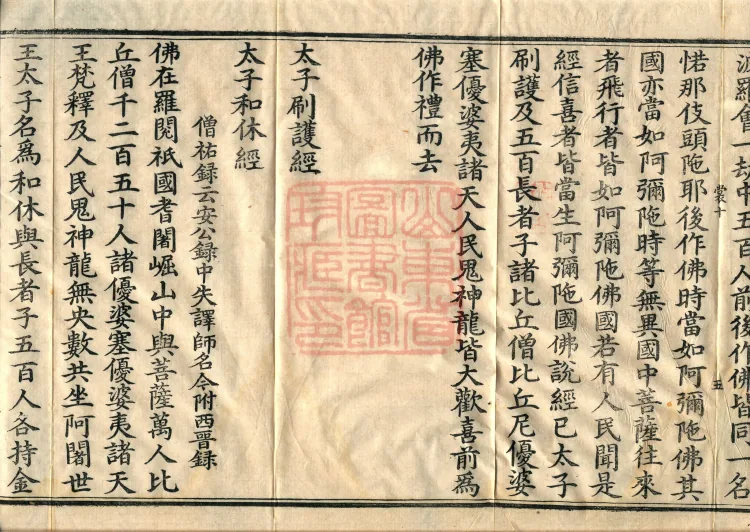 波羅會一劫中五百人前後作佛皆同一名
裳十
五
惒那伎頭陁耶後作佛時當如阿彌陁佛其
國亦當如阿彌陁時等無異國中菩薩往來
者飛行者皆如阿彌陁佛國若有人民聞是
經信喜者皆當生阿彌陁國佛說經已太子
刷護及五百長者子諸比丘僧比丘尼優婆
塞優婆夷諸天人民鬼神龍皆大歡喜前爲
佛作禮而去
太子刷護經
太子和休經
僧祐録云安公録中失譯師名今附西晋録
佛在羅閱祇國耆闍崛山中與菩薩萬人比
丘僧千二百五十人諸優婆塞優婆夷諸天
王梵釋及人民鬼神龍無央數共坐阿闍世
王太子名爲和休與長者子五百人各持金
山東省
圖書館